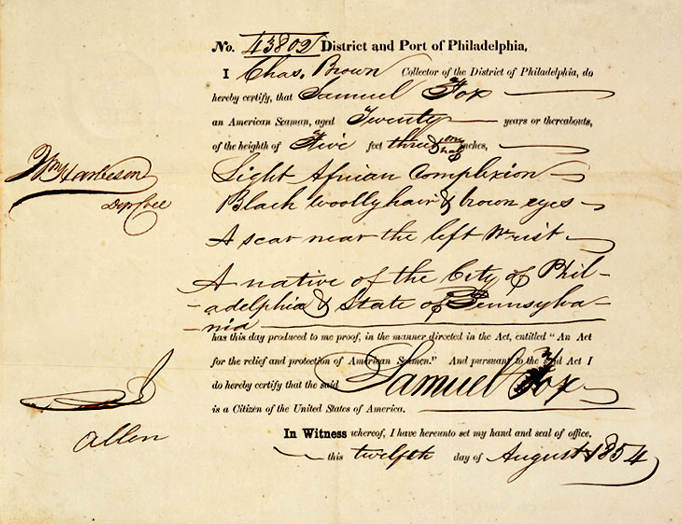 No. 43802 District and Port of Philadelphia,
I Chas. Brown Collector of the District of Philadelphia, do
hereby certify, that Samuel Fox
an American Seaman, aged Twenty years or thereabouts,
of the heighth of Five feet three & one half inches,
Light African Complexion
Black woolly hair & brown eyes
A scar near the left Wrist
A native of the City of Phil-
-adelphia & State of Pennsylva-
-nia
has this day produced to me proof, in the manner directed in the Act, entitled "An Act
for the relief and protection of American Seamen." And pursuant to the said Act I
do hereby certify that the said Samuel Fox
is a Citizen of the United States of America.
In Witness whereof, I have hereunto set my hand and seal of office,
this twelfth day of August 1854
Wm Harbeson
Dep Coll
Allen